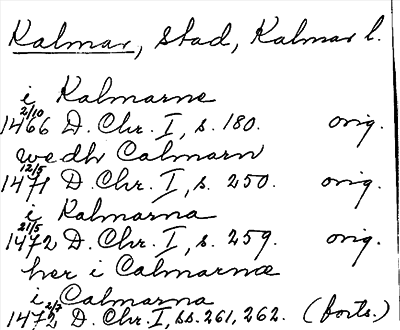 Kalmar, stad, Kalmar l.
i Kalmarne
1466 2/10 D. Chr. I, s. 180. orig.
wedh Calmarn
1471 12/5 D. Chr. I, s. 250. orig.
i Kalmarna
1472 21/5 D. Chr. I, s. 259. orig.
her i Calmarnæ
i Calmarna
1472 2/7 D. Chr. I, ss. 261, 262. (forts.)